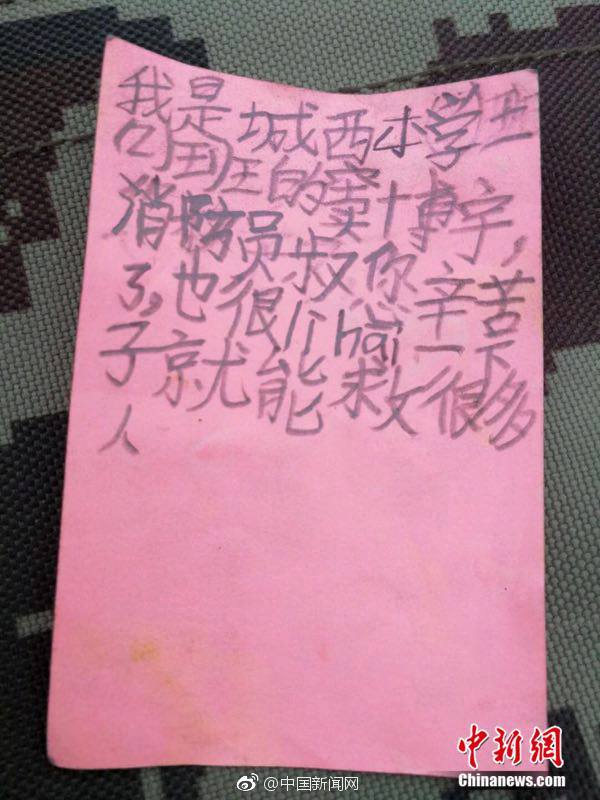 我是城西小学二
班的窦博宇，
消防员叔你辛苦
了，也很hai一下
子就能救很多
人
中新网
Chinanews.com
@中国新闻网